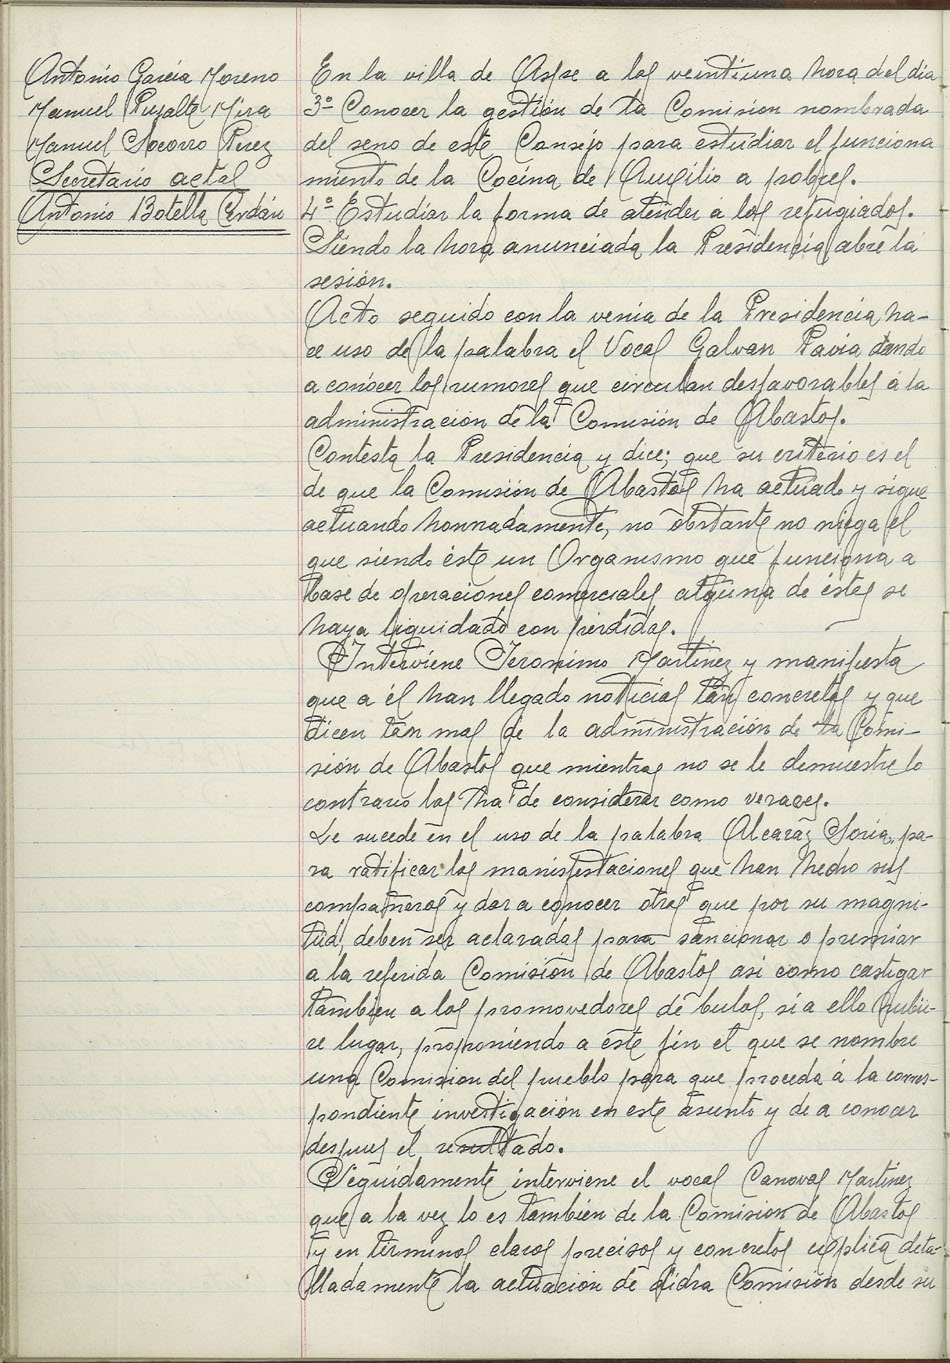 Antonio García Moreno
Manuel Pujalte Mira
Manuel Socorro Pérez
Secretario actal
Antonio Botella Cerdán
En la villa de Aspe a las veintiuna hora del dia
3º Conocer la gestión de la Comisión nombrada
del seno de este Consejo para estudiar el funciona
miento de la Cocina de Auxilio a pobres.
4º Estudiar la forma de atender a los refugiados.
Siendo la hora anunciada la Presidencia abre la
sesión.
Acto seguido con la venia de la Presidencia, ha-
ce uso de la palabra el Vocal Galvan Pavia dando
a conocer los rumores que circulan desfavorables á la
administración de la Comisión de Abastos.
Contesta la Presidencia y dice; que su criterio es el
de que la Comisión de Abastos ha actuado y sigue
actuando honradamente, no obstante no niega el
que siendo éste un Organismo que funciona a
base de operaciones comerciales alguna de éstas se
haya liquidado con pérdidas.
Interviene Jeronimo Martinez y manifiesta
que a él han llegado noticias tan concretas y que
dicen tan mal de la administración de la Comi-
sión de Abastos que mientras no se le demuestre lo
contrario las ha de considerar como veraces.
Le sucede en el uso de la palabra Alcaráz Soria, pa-
ra ratificar las manisfestaciones que han hecho sus
compañeros y dar a conocer otras que por su magni-
tud, deben ser aclaradas para sancionar o premiar
a la referida Comisión de Abastos asi como castigar
tambien a los promovedores de bulos, si a ello hubie-
re lugar, proponiendo a este fin el que se nombre
una Comision del pueblo para que proceda á la corres-
pondiente investigación en este asunto y de a conocer
despues el resultado.
Seguidamente interviene el vocal Canoval Martinez
que a la vez lo es tambien de la Comision de Abastos
y en términos claros precisos y concretos explica deta-
lladamente la actuación de dicha Comisión desde su